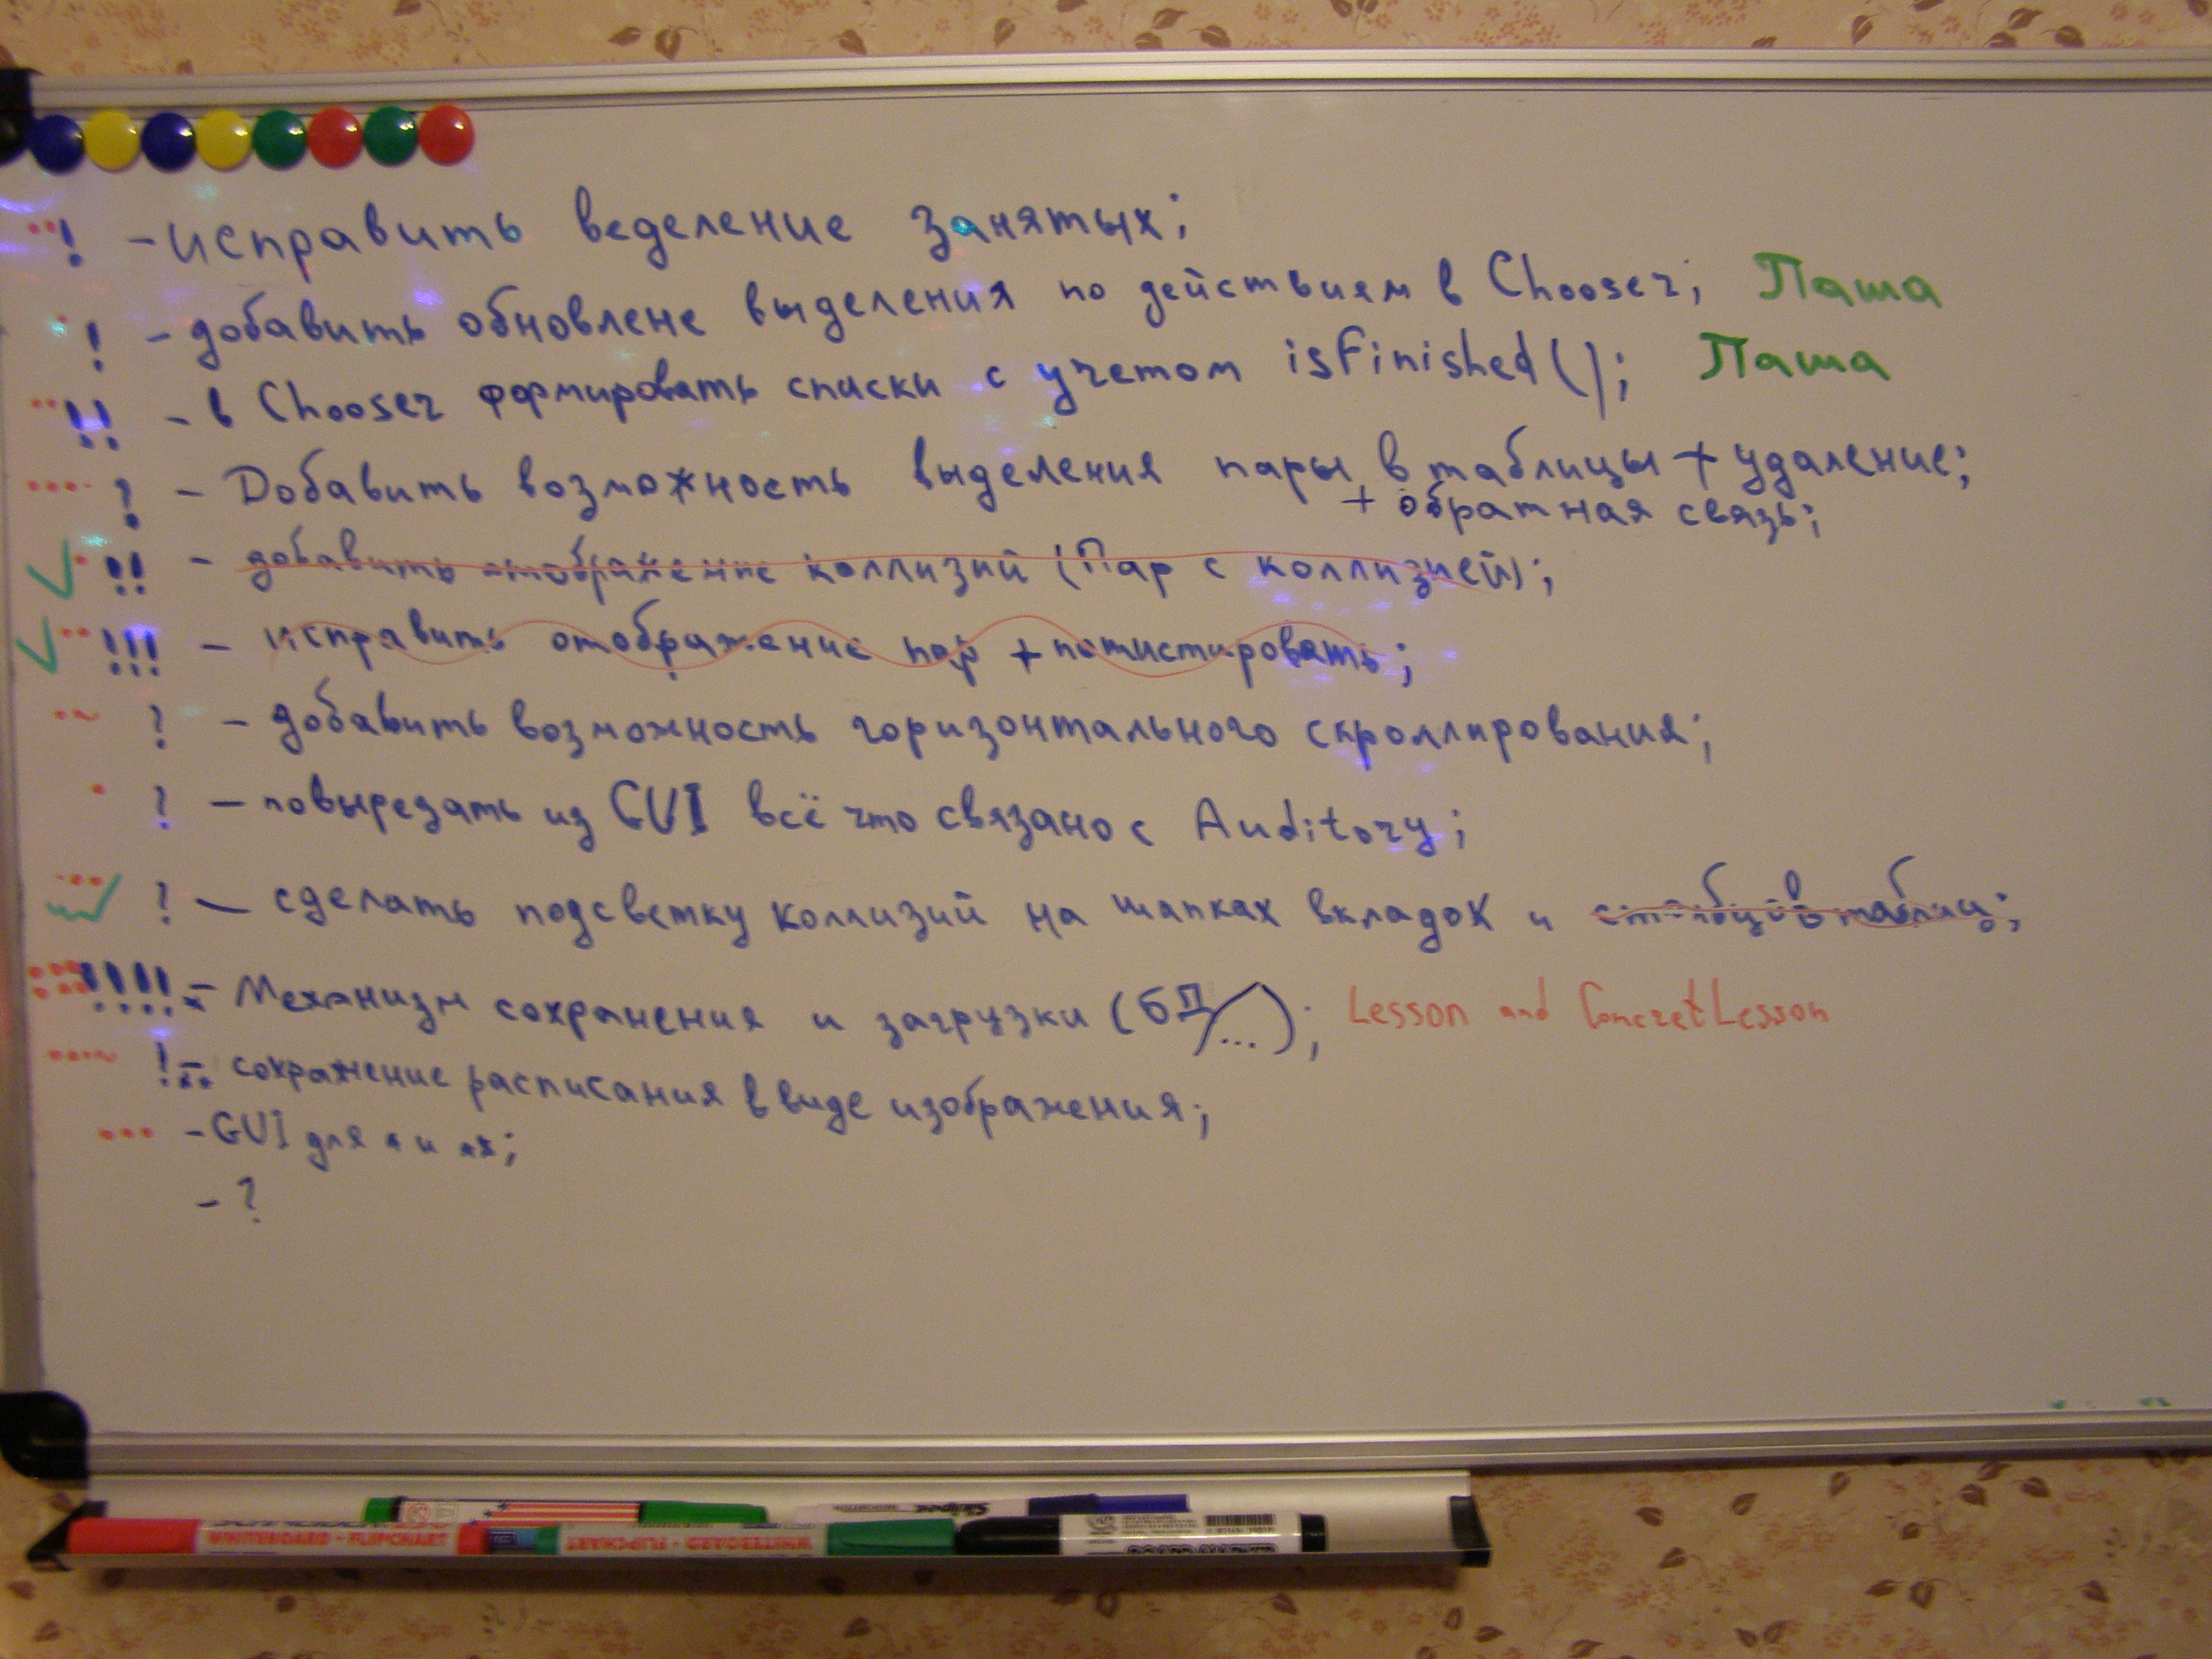 ! - исправить веделение занятых;
! - добавить обновлене выделения по действиям в Chooser; Паша
!! - в Chooser формировать списки с учетом isFinished(); Паша
? - Добавить возможность выделения пары в таблицы + удаление;
+ обратная связь;
!! - добавить отображение коллизий (Пар с коллизией);
!!! - исправить отображение пар + потистировать;
? - добавить возможность горизонтального скроллирования;
? - повырезать из GUI всё что связано с Auditory;
? - сделать подсветку коллизий на шапках вкладок и столбцов таблиц;
!!!! * - Механизм сохранения и загрузки (БД/...); Lesson and ConcretLesson
! ** - сохранение расписания в виде изображения;
- GUI для * и **;
- ?
WHITEBOARD - FLIPCHART
WHITEBOARD - FLIPCHART